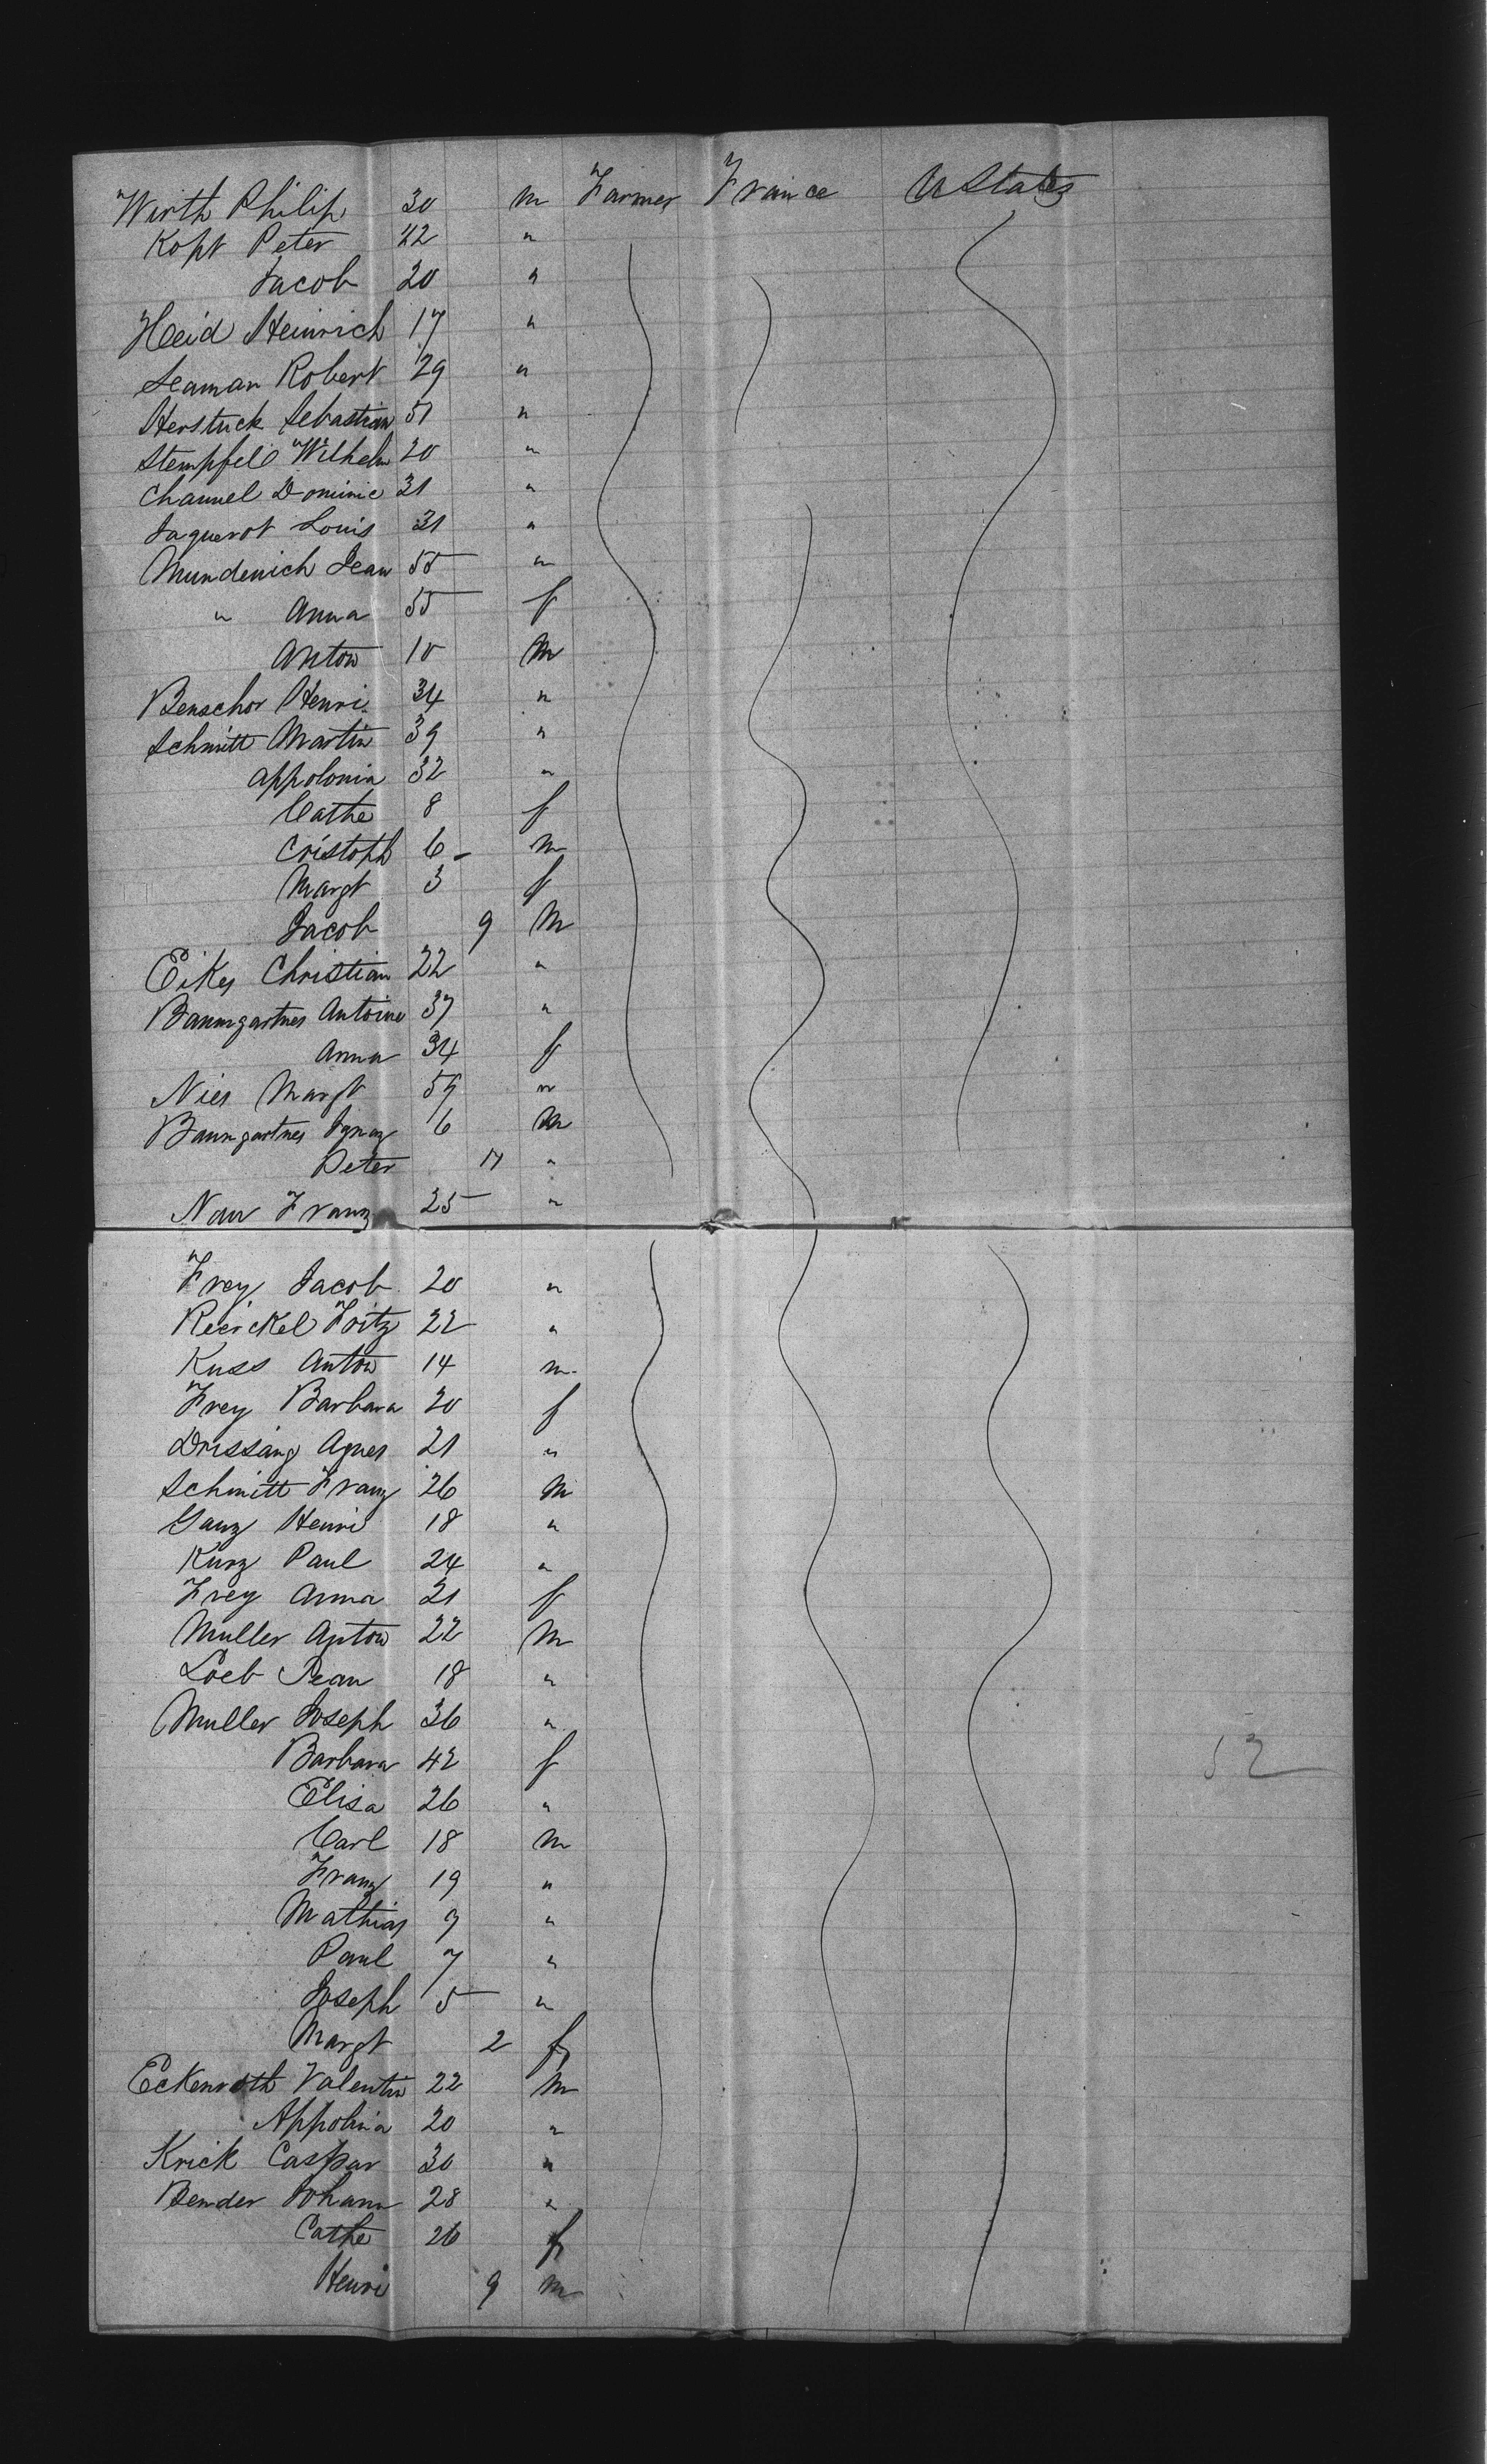 Wirth Philip 30 m Farmer France U States
Kopt Peter 42 "
Jacob 20 "
Heid Heinrich 17 "
Seaman Robert 29 "
Herstuck Sebastian 51 "
Stempfel Wilhelm 20 "
Charmel Dominic 31 "
Jaquerot Louis 31 "
Mundenich Jean 55 "
" Anna 55 f
Anton 10 m
Benschor Henri 34 "
Schmitt Martin 39 "
Appolonia 32 "
Cathe 8 f
Cristoph 6 - m
Margt 3 f
Jacob 9 m
Eiker Christian 22 "
Baumgartner Antoine 37 "
Anna 34 f
Nies Margt 59 "
Baumgartner Ignaz 6 m
Peter 11 "
Nau Franz 25 "
Frey Jacob 20 "
Reickel Fritz 22 "
Kuss Anton 14 m
Frey Barbara 20 f
Drissang Agnes 21 "
Schmitt Franz 26 m
Ganz Henri 18 "
Kurz Paul 24 "
Frey Anna 21 f
Muller Anton 22 m
Loeb Jean 18 "
Muller Joseph 36 "
Barbara 42 f
Elisa 26 "
Carl 18 m
Franz 19 "
Mathias 9 "
Paul 7 "
52
Joseph 5 "
Margt 2 f
Eckenroth Valentin 22 m
Appolinia 20 "
Krick Caspar 30 "
Bender Johann 28 "
Cathe 26 f
Henri 9 m